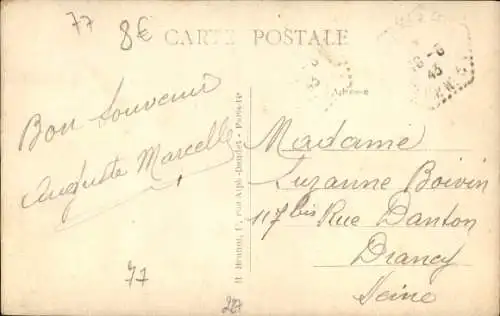 77
8€
CARTE POSTALE
16-6
43
Adresse
Bon Souvenir
Auguste Marcelle
Madame
Suzanne Boivin
117 bis Rue Danton
Drancy
Seine
77